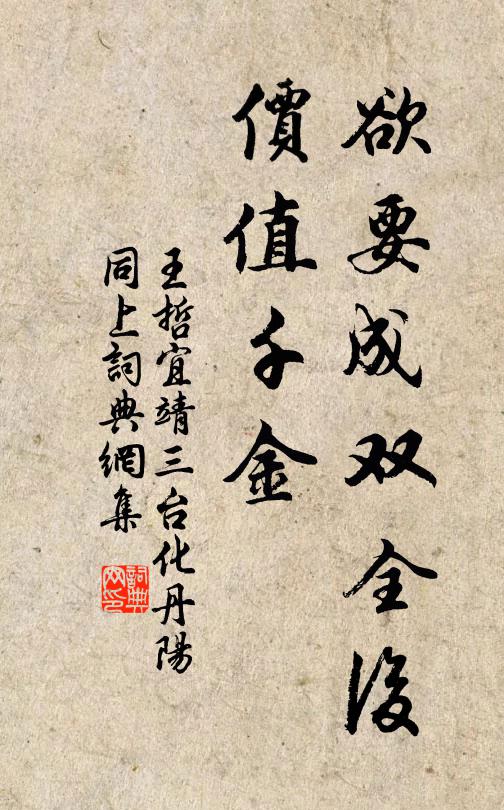 欲要成双全復
價值千金
王哲宜靖三台化丹陽
同上詞典網集
詞典網印